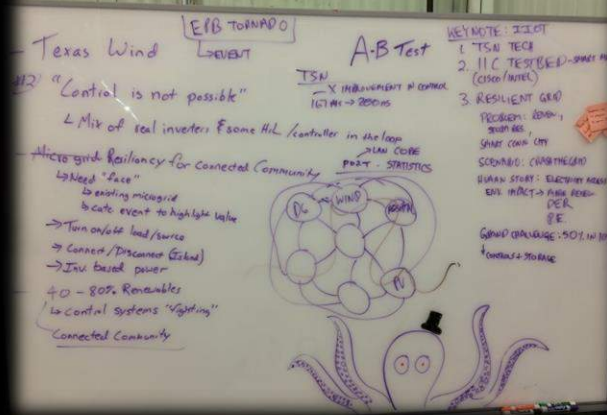 EPB TORNADO
↳EVENT
- Texas Wind
#2) "Control is not possible"
↳ Mix of real inverters & some HiL/controller in the loop
- Microgrid Resiliancy for Connected Community
↳ Need "face"
↳ existing microgrid
↳ cate event to highlight value
→ Turn on/off load/source
→ Connect/Disconnect (Island)
→ Inv. based power
- 40-80% Renewables
↳ Control systems "fighting"
Connected Community
A-B Test
TSN
X IMPROVEMENT IN CONTROL
167ms →
↳ LAN CORE
POST - STATISTICS
DG
WIND
PV
KEYNOTE: IIOT
1. TSN TECH
2. IIC TESTBED - SMART
(CISCO/INTEL)
3. RESILIENT GRID
PROBLEM: RENEW,
SMART CONN CITY
SCENARIO:
HUMAN STORY: ELECTRICITY
ENV. IMPACT →
DER
GRAND CHALLENGE: 50% IN
CONTROLS + STORAGE